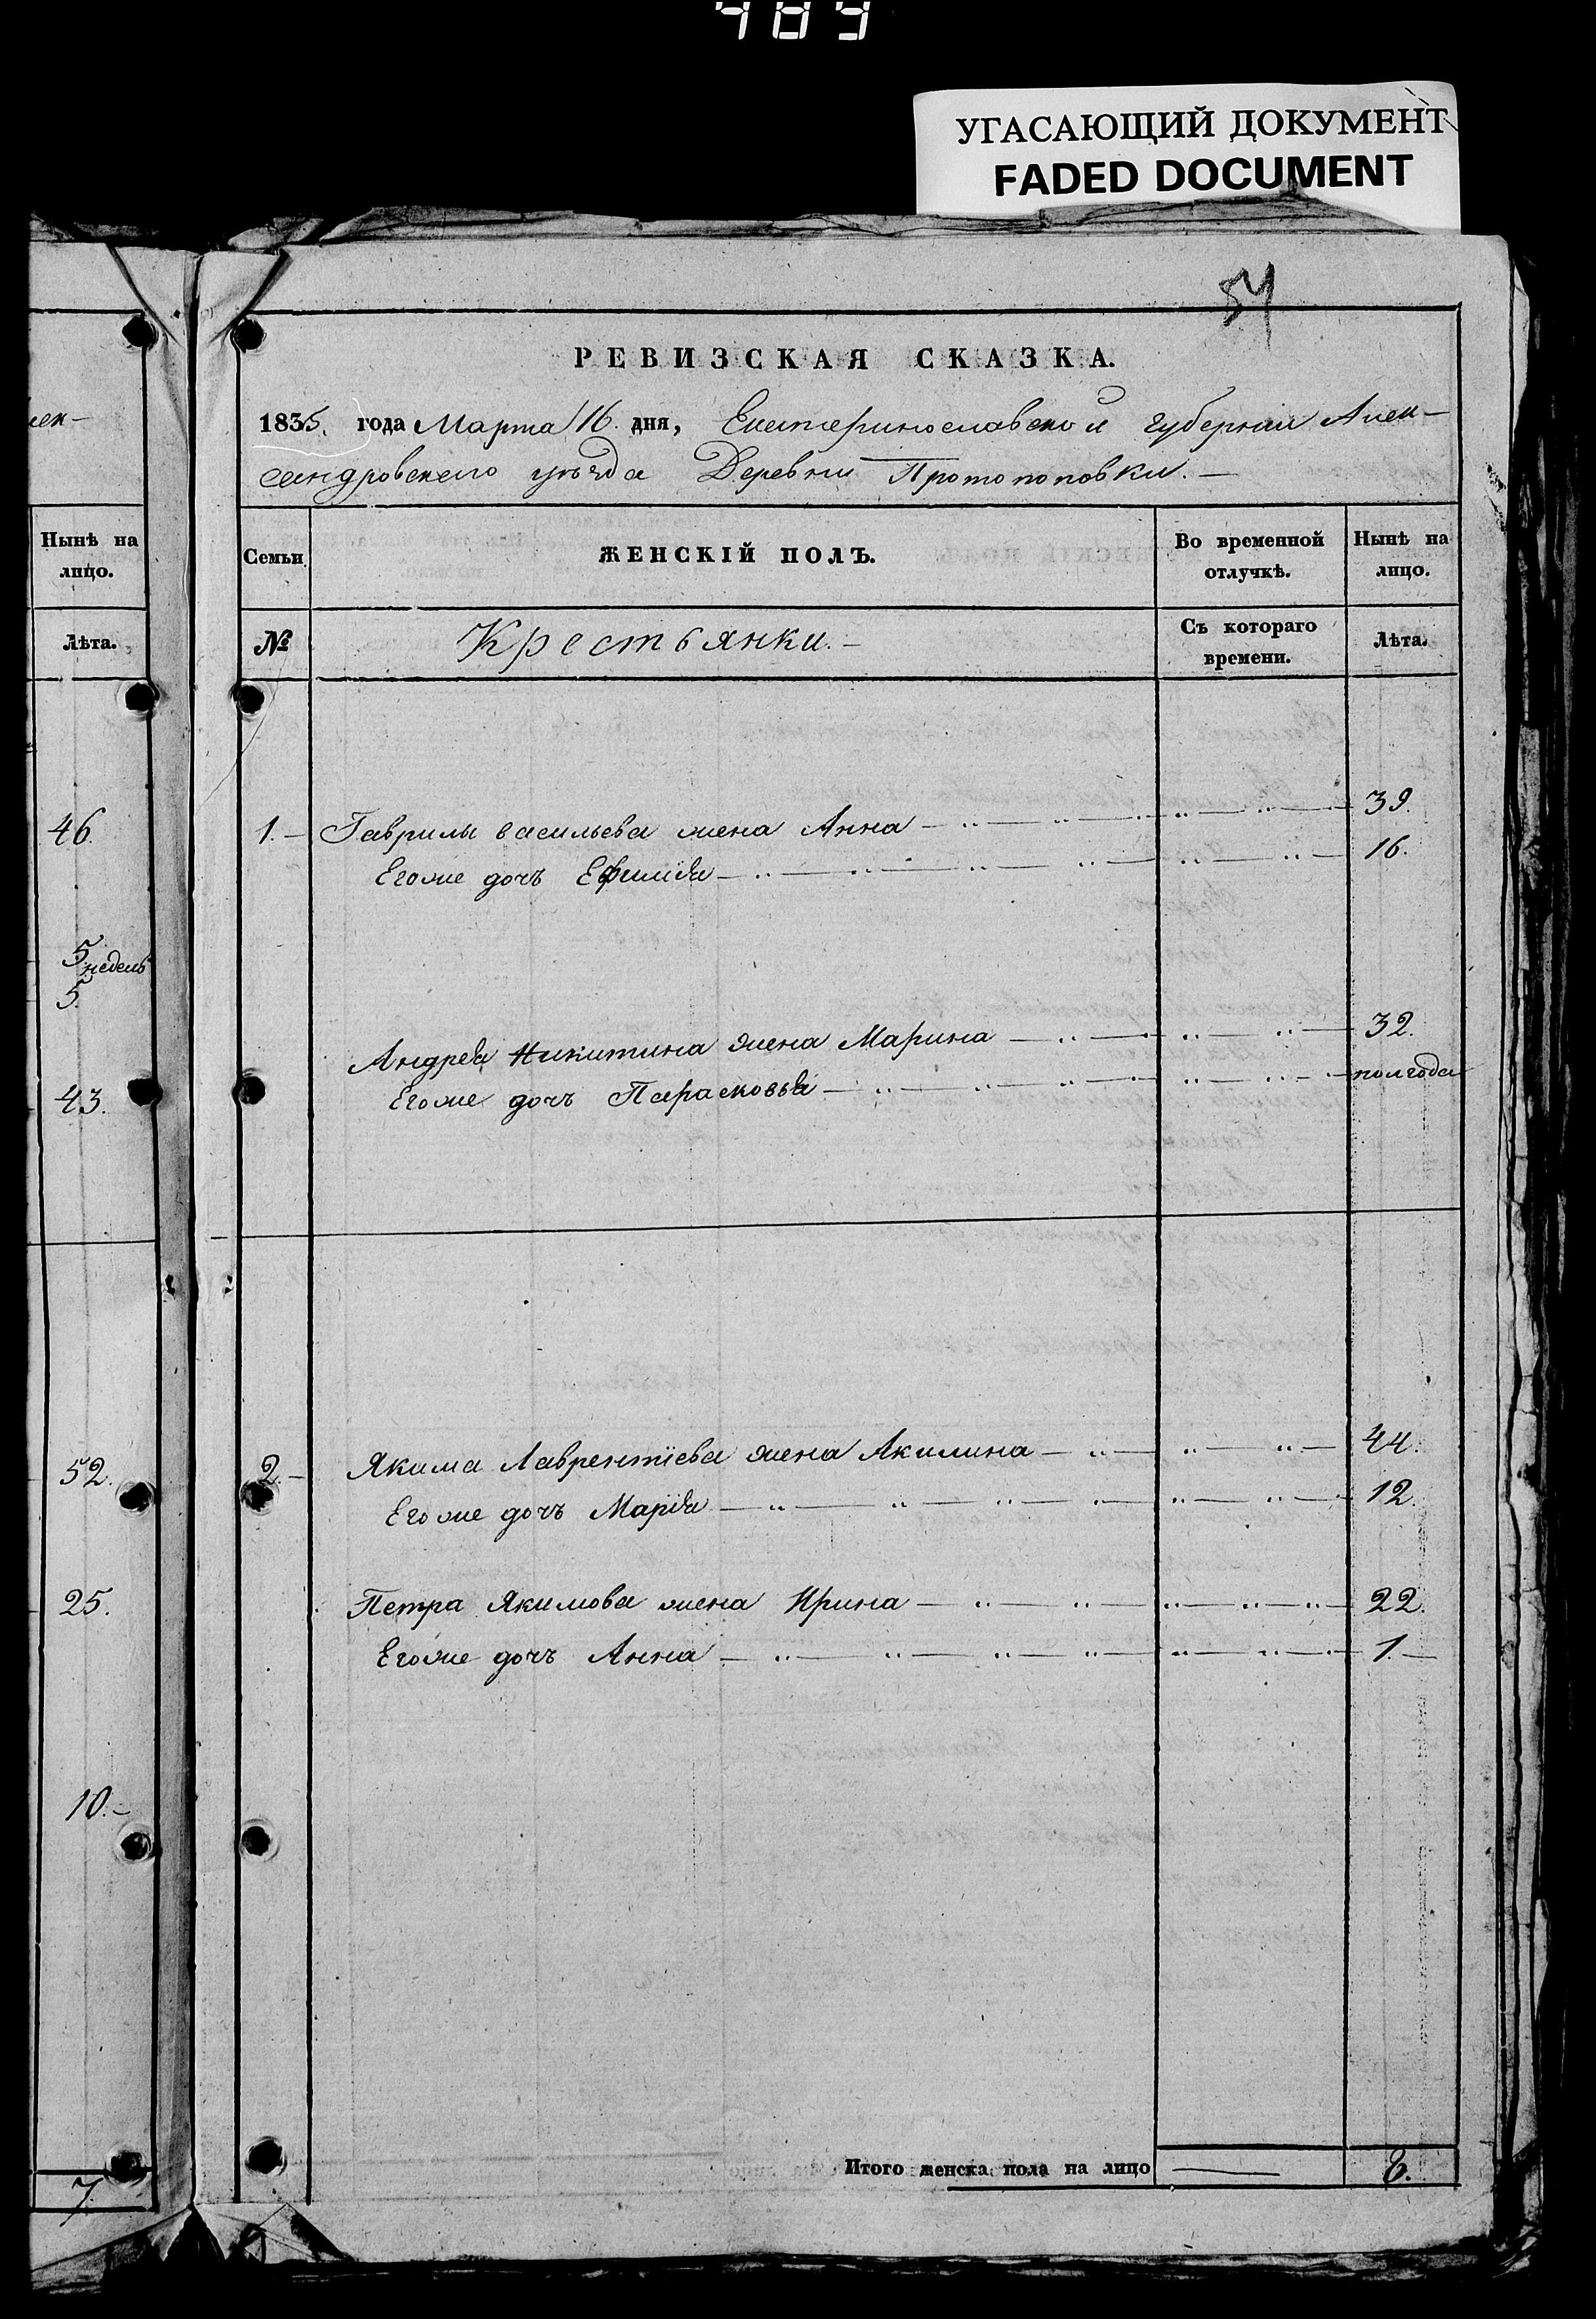 489
УГАСАЮЩИЙ ДОКУМЕНТ
FADED DOCUMENT
54
лек-
Нынѣ на
лицо.
Лѣта.
46.
5 недель
5.
43.
52.
25.
10.-
7.
РЕВИЗСКАЯ СКАЗКА.
1835. года Марта 16. дня, Екатеринославской губернии Алек-
сандровского уѣзда Деревни Протопоповки.-
Семьи ЖЕНСКІЙ ПОЛЪ. Во временной отлучкѣ. Нынѣ на лицо.
№ Крестьянки.- Съ котораго времени. Лѣта.
1.- Гаврилы васильева жена Анна 39.
Егоже дочъ Ефимiя 16.
Андрея Никитина жена Марина 32.
Егоже дочъ Парасковья полгода
2.- Якима Лаврентiева жена Акилина 44.
Егоже дочъ Марiя 12.
Петра Якимова жена Ирина 22.
Егоже дочъ Анна 1.-
Итого женска пола на лицо 8.